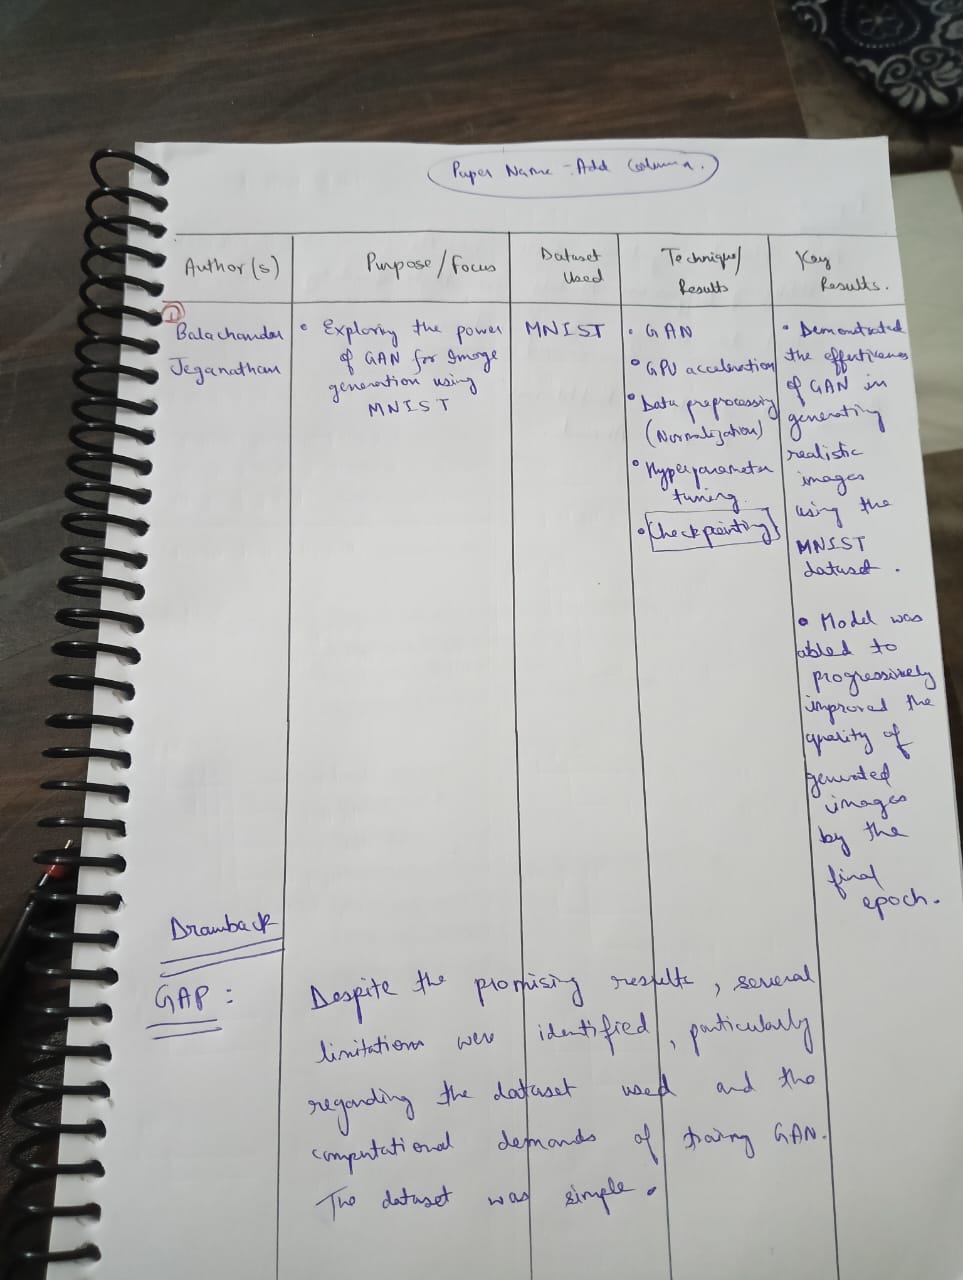 Paper Name - Add Column.
Author(s)
Purpose/Focus
Dataset
Used
Technique/
Results
Key
Results.
1
Balachandar
Jeganathan
• Exploring the power
of GAN for Image
generation using
MNIST
MNIST
• GAN
• GPU acceleration
• Data preprocessing
(Normalization)
• Hyperparameter
tuning.
• Checkpointing
• Demonstrated
the effectiveness
of GAN in
generating
realistic
images
using the
MNIST
dataset.
• Model was
abled to
progressively
improved the
quality of
generated
images
by the
final
epoch.
Drawback
GAP :
Despite the promising results, several
limitations were identified, particularly
regarding the dataset used and the
computational demands of traing GAN.
The dataset was simple.